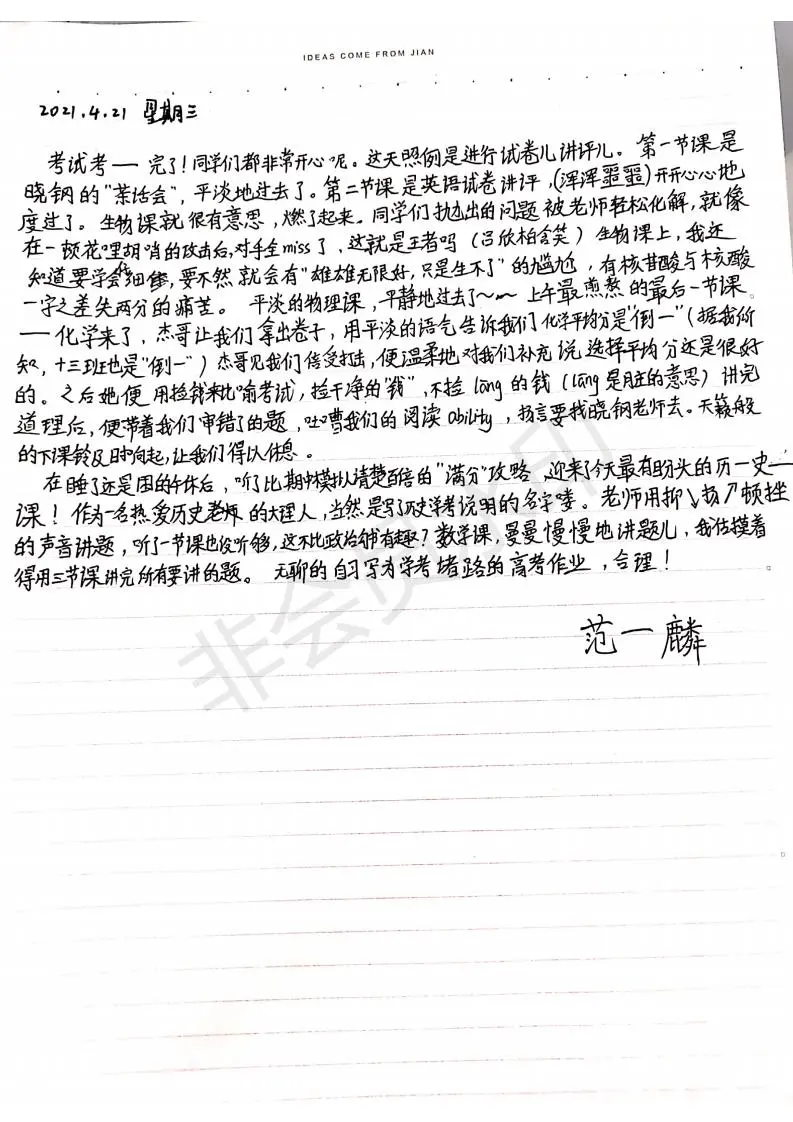 IDEAS COME FROM JIAN
2021.4.21 星期三
考试考一完了！同学们都非常开心呢。这天照例是进行试卷儿讲评儿。第一节课是
晓钢的"茶话会"，平淡地过去了。第二节课是英语试卷讲评，(浑浑噩噩)开开心心地
度过了。生物课就很有意思，燃了起来。同学们抛出的问题被老师轻松化解，就像
在一顿花哩胡哨的攻击后，对手全miss了，这就是王者吗（吕欣柏含笑）生物课上，我还
知道要学会 细 ，要不然就会有"雄雄无限好，只是生不了"的尴尬，有核苷酸与核酸
一字之差失两分的痛苦。平淡的物理课，平静地过去了～～上午最煎熬的最后一节课
——化学来了，杰哥让我们拿出卷子，用平淡的语气告诉我们化学平均分是"倒一"（据我所
知，十三班也是"倒一"）杰哥见我们倍受打击，便温柔地对我们补充说选择平均分还是很好
的。之后她便用捡钱来比喻考试，捡干净的"钱"，不捡lāng的钱（lāng是脏的意思）讲完
道理后，便带着我们审错了的题，吐嘈我们的阅读ability，扬言要找晓钢老师去。天籁般
的下课铃及时向起，让我们得以休息。
在睡了还是困的午休后，听了比期中模拟清楚百倍的"满分"攻略，迎来了今天最有盼头的历一史一
课！作为一名热爱历史老师的大理人，当然是写了历史学考说明的名字喽。老师用抑↘扬↗顿挫
的声音讲题，听了一节课也没听够，这不比政治 有趣？数学课，曼曼慢慢地讲题儿，我估摸着
得用三节课讲完所有要讲的题。无聊的自习写为学考堵路的高考作业，合理！
范一麟
非会员水印